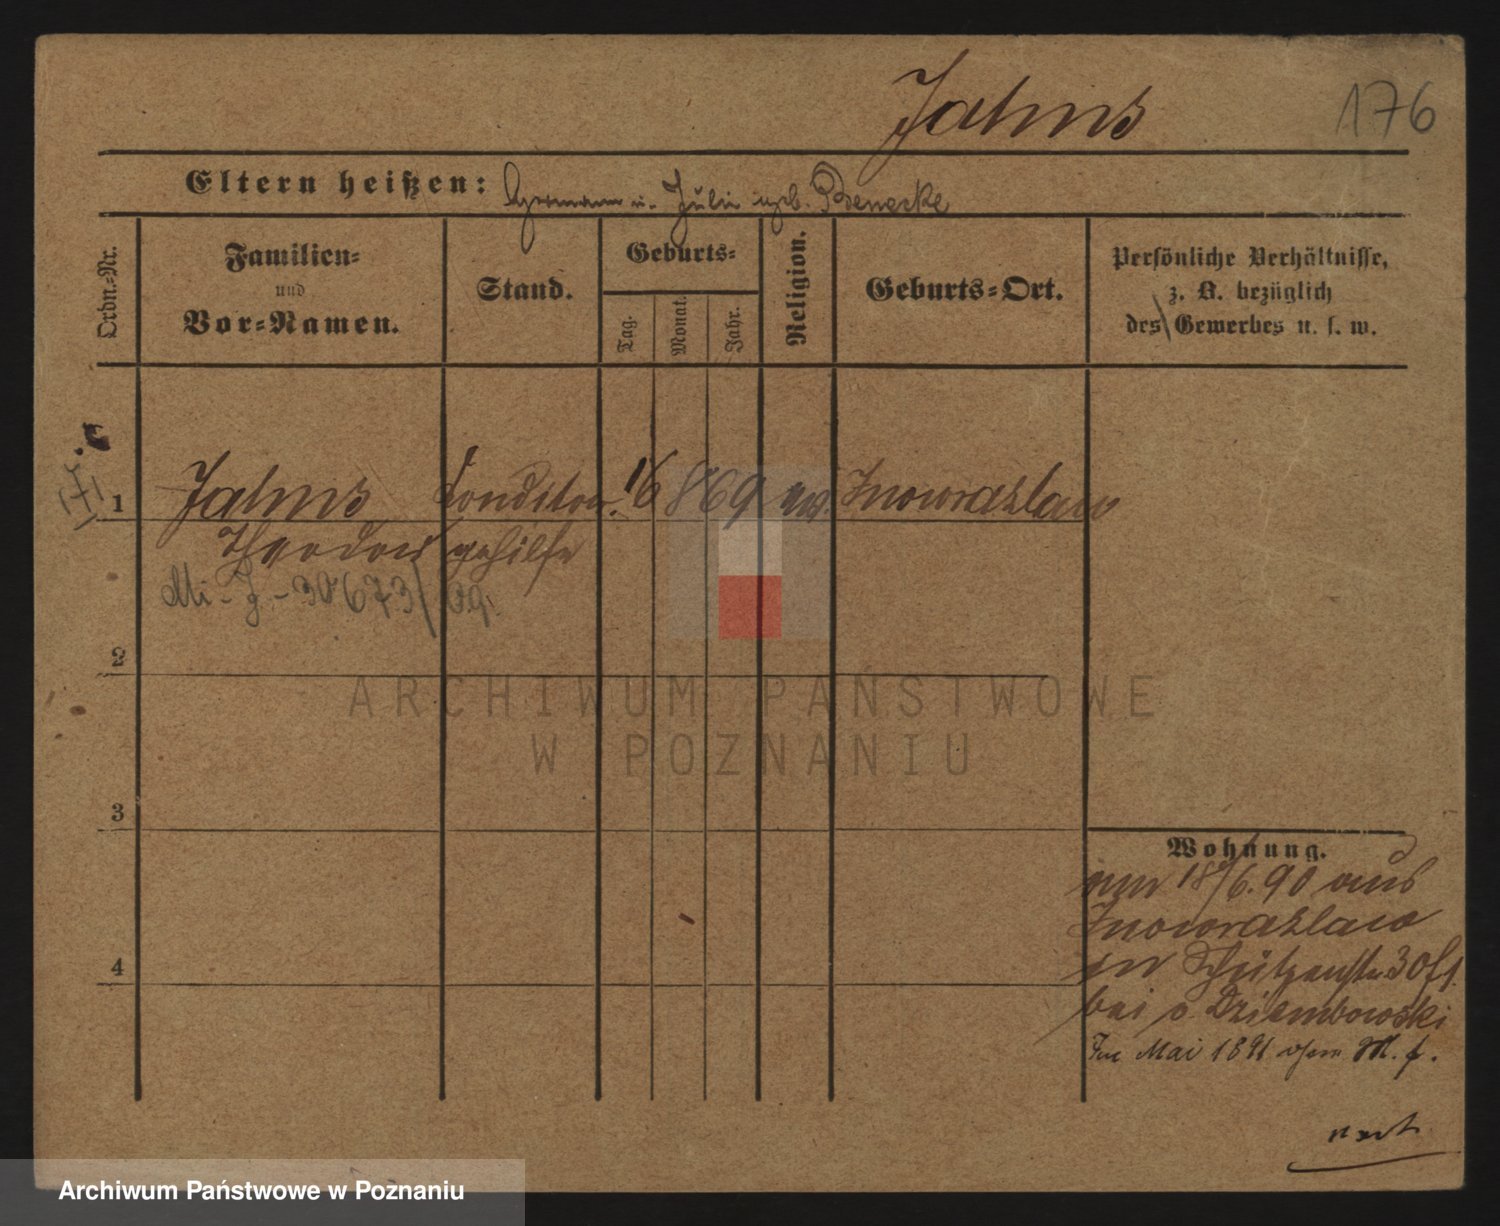 Jahns
176
Eltern heißen: Hermann u. Julie geb. Benecke
Ordn.-Nr.
Familien-
und
Vor-Namen.
Stand.
Geburts-
Tag.
Monat.
Jahr.
Religion.
Geburts-Ort.
Persönliche Verhältnisse,
z. B. bezüglich
des Gewerbes u. s. w.
1
Jahns Conditor 1 6 869 ev. Inowrazlaw
Theodor gehilfe
Mi - J - 30673/
2
3
4
Wohnung.
am 18/6.90 aus
Inowrazlaw
in Schützenstr 30
bei v. Dziembowski
Im Mai 1891 ohne M. f.
ARCHIWUM PAŃSTWOWE
W POZNANIU
Archiwum Państwowe w Poznaniu